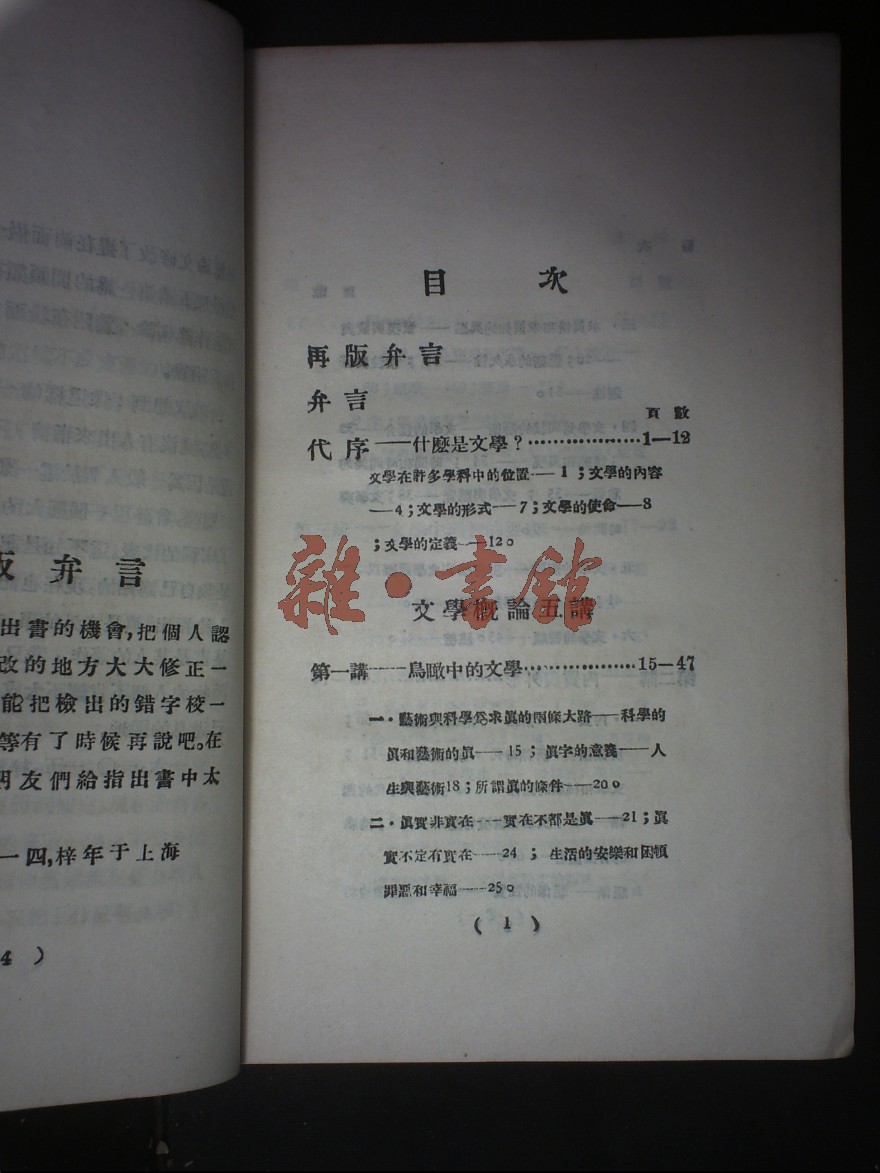 版弁言
出書的機會,把個人認
改的地方大大修正一
能把檢出的錯字校一
等有了時候再說吧。在
朋友們給指出書中太
一四,梓年于上海
4 )
目 次
再版弁言
弁言
頁數
代序——什麼是文學?··················1—12
文學在許多學科中的位置——1;文學的內容
—4;文學的形式——7;文學的使命——8
;文學的定義——12。
雜·書館
文學概論五講
第一講——鳥瞰中的文學··················15—47
一·藝術與科學爲求眞的兩條大路——科學的
眞和藝術的眞——15;眞字的意義——人
生與藝術18;所謂眞的條件——20。
二·眞實非實在——實在不都是眞——21;眞
實不定有實在——24;生活的安樂和困頓
罪惡和幸福——25。
( 1 )